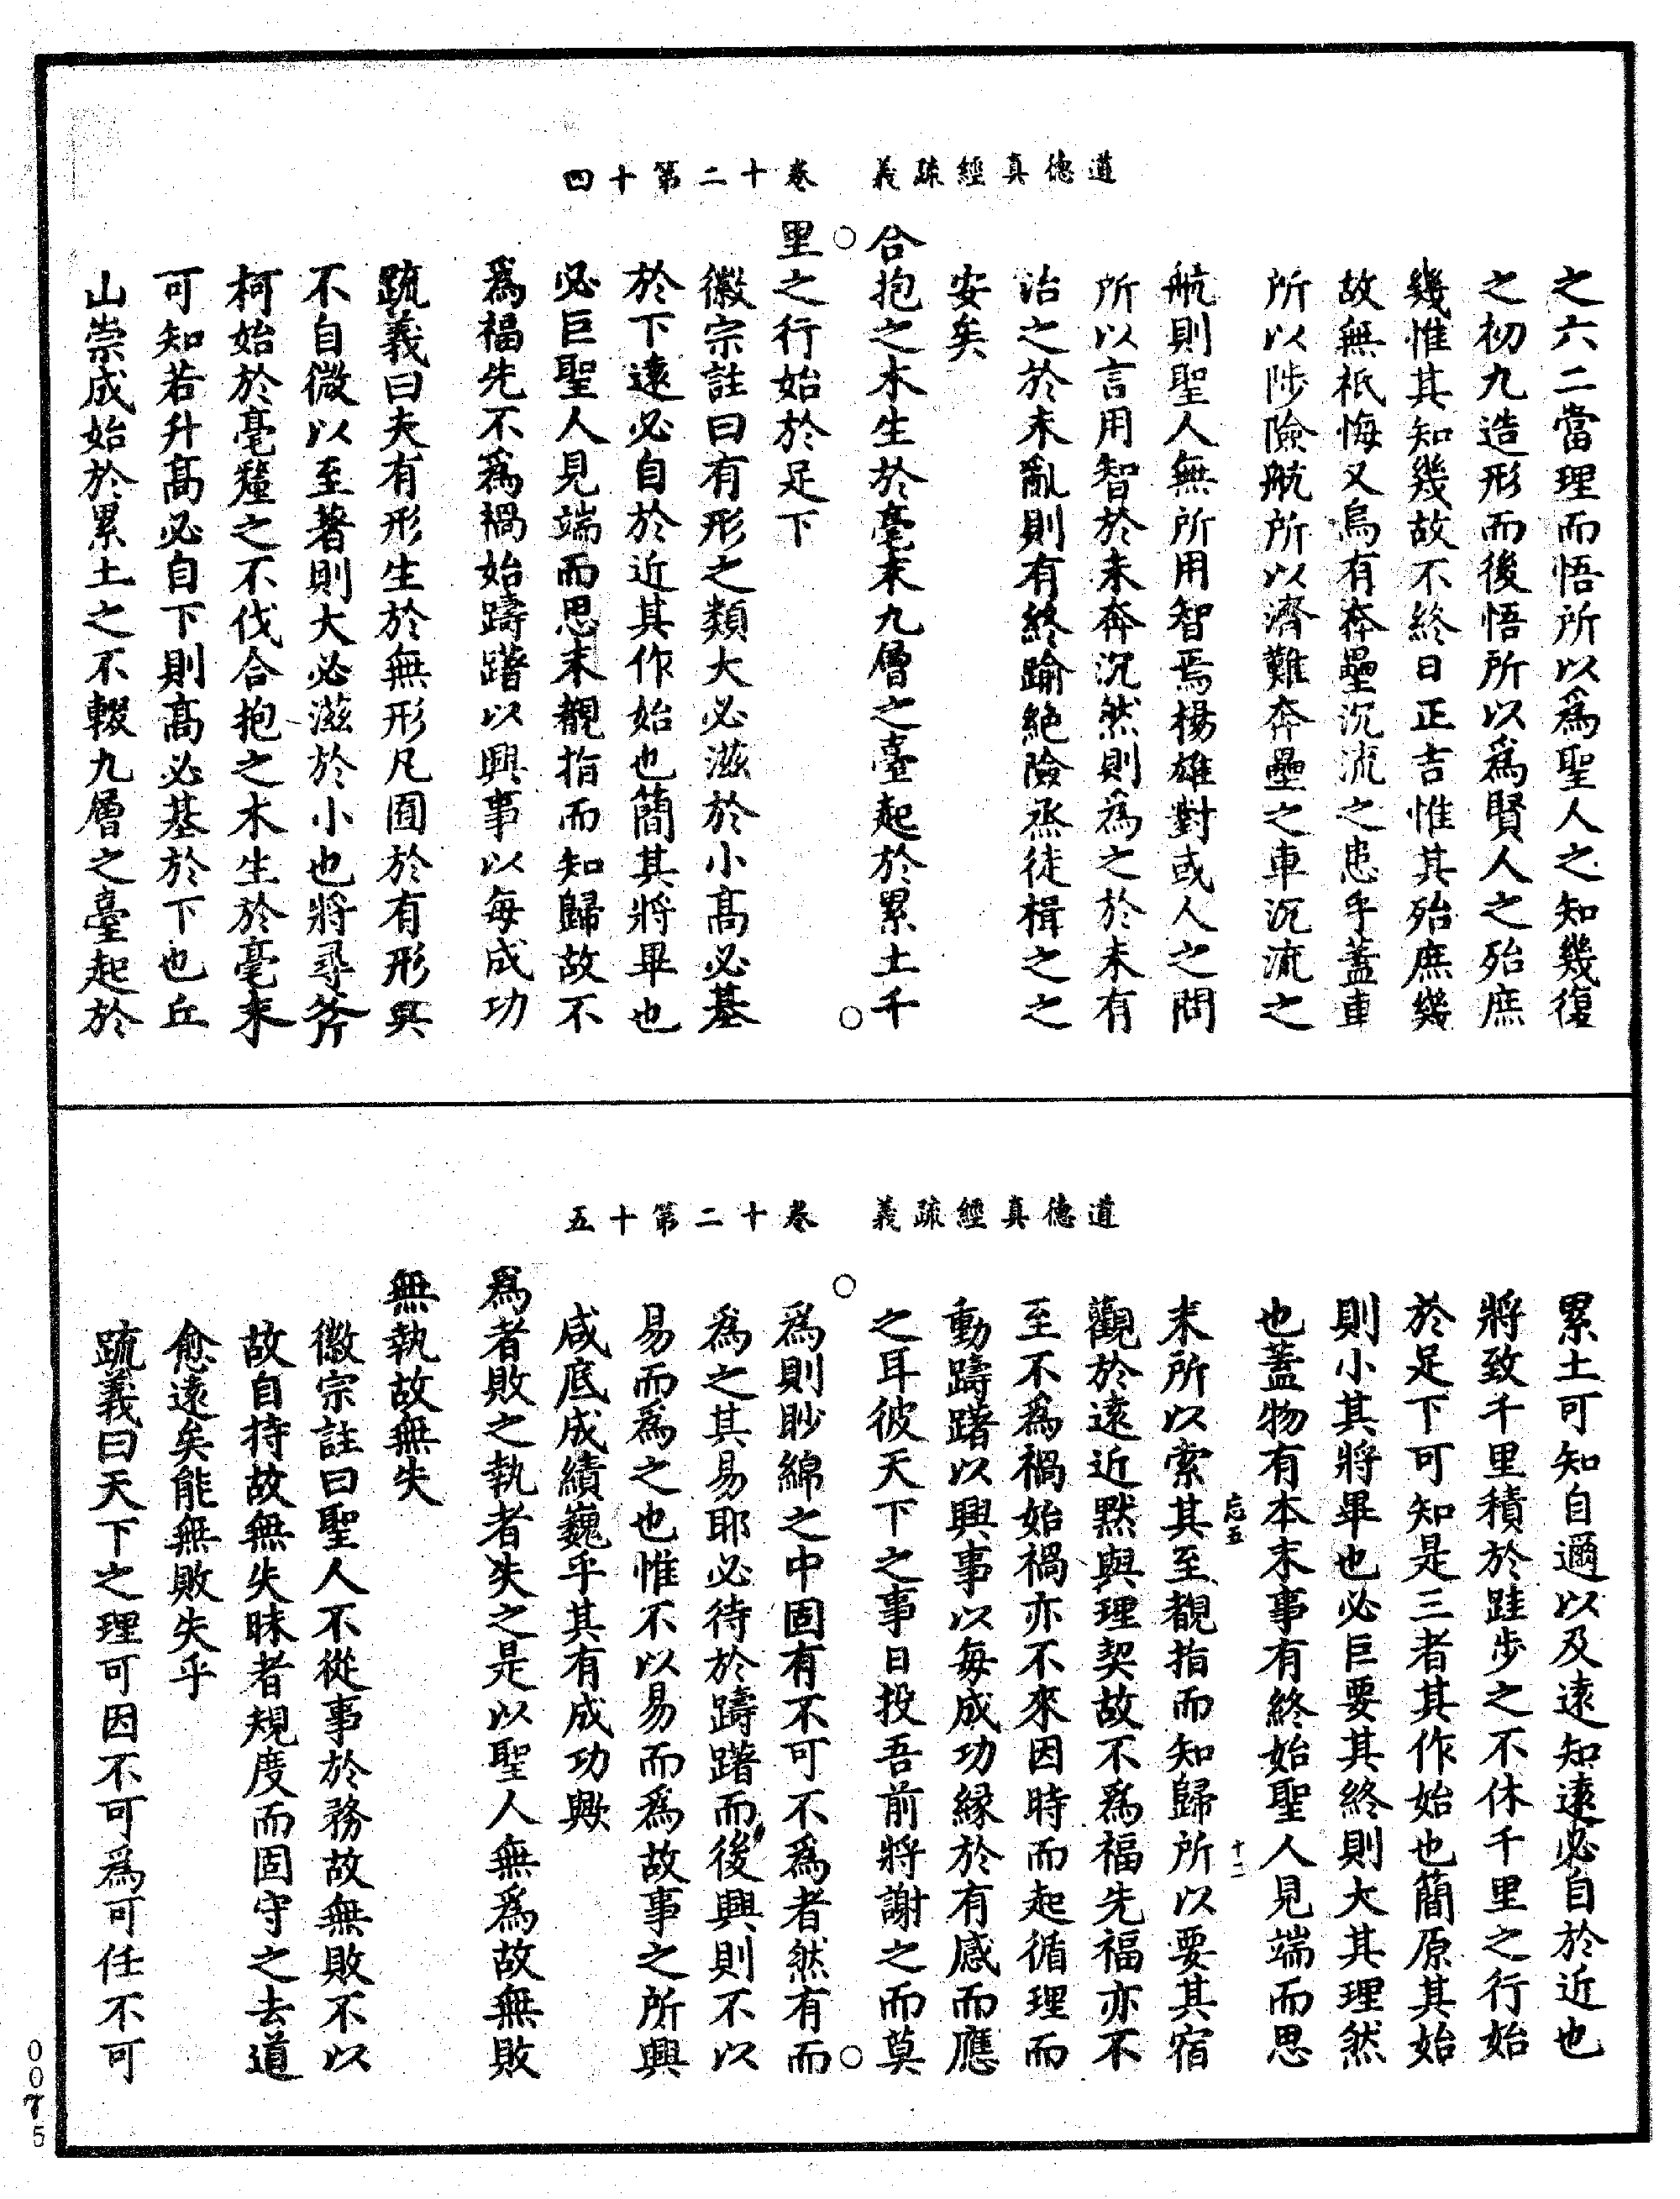 道德真經疏義　卷十二第十四
之六二當理而悟所以爲聖人之知幾復
之初九造形而後悟所以爲賢人之殆庶
幾惟其知幾故不終日正吉惟其殆庶幾
故無祇悔又烏有奔壘沉流之患乎蓋車
所以陟險航所以濟難奔壘之車沉流之
航則聖人無所用智焉楊雄對或人之問
所以言用智於未奔沉然則為之於未有
治之於未亂則有終踰絶險烝徒楫之之
安矣
合抱之木生於毫末九層之臺起於累土千
里之行始於足下
徽宗註曰有形之類大必滋於小高必基
於下遠必自於近其作始也簡其將畢也
必巨聖人見端而思末覩指而知歸故不
爲福先不爲禍始躊躇以興事以每成功
疏義曰夫有形生於無形凡囿於有形與
不自微以至著則大必滋於小也將尋斧
柯始於毫釐之不伐合抱之木生於毫末
可知若升高必自下則高必基於下也丘
山崇成始於累土之不輟九層之臺起於
道德真經疏義　卷十二第十五
累土可知自邇以及遠知遠必自於近也
將致千里積於跬步之不休千里之行始
於足下可知是三者其作始也簡原其始
則小其將畢也必巨要其終則大其理然
也蓋物有本末事有終始聖人見端而思
忘五　十二
末所以索其至覩指而知歸所以要其宿
觀於遠近默與理契故不爲福先福亦不
至不爲禍始禍亦不來因時而起循理而
動躊躇以興事以每成功縁於有感而應
之耳彼天下之事日投吾前將謝之而莫
爲則眇綿之中固有不可不爲者然有而
為之其易耶必待於躊躇而後興則不以
易而爲之也惟不以易而爲故事之所興
咸底成績巍乎其有成功歟
爲者敗之執者失之是以聖人無爲故無敗
無執故無失
徽宗註曰聖人不從事於務故無敗不以
故自持故無失昧者規度而固守之去道
愈遠矣能無敗失乎
疏義曰天下之理可因不可爲可任不可
0075